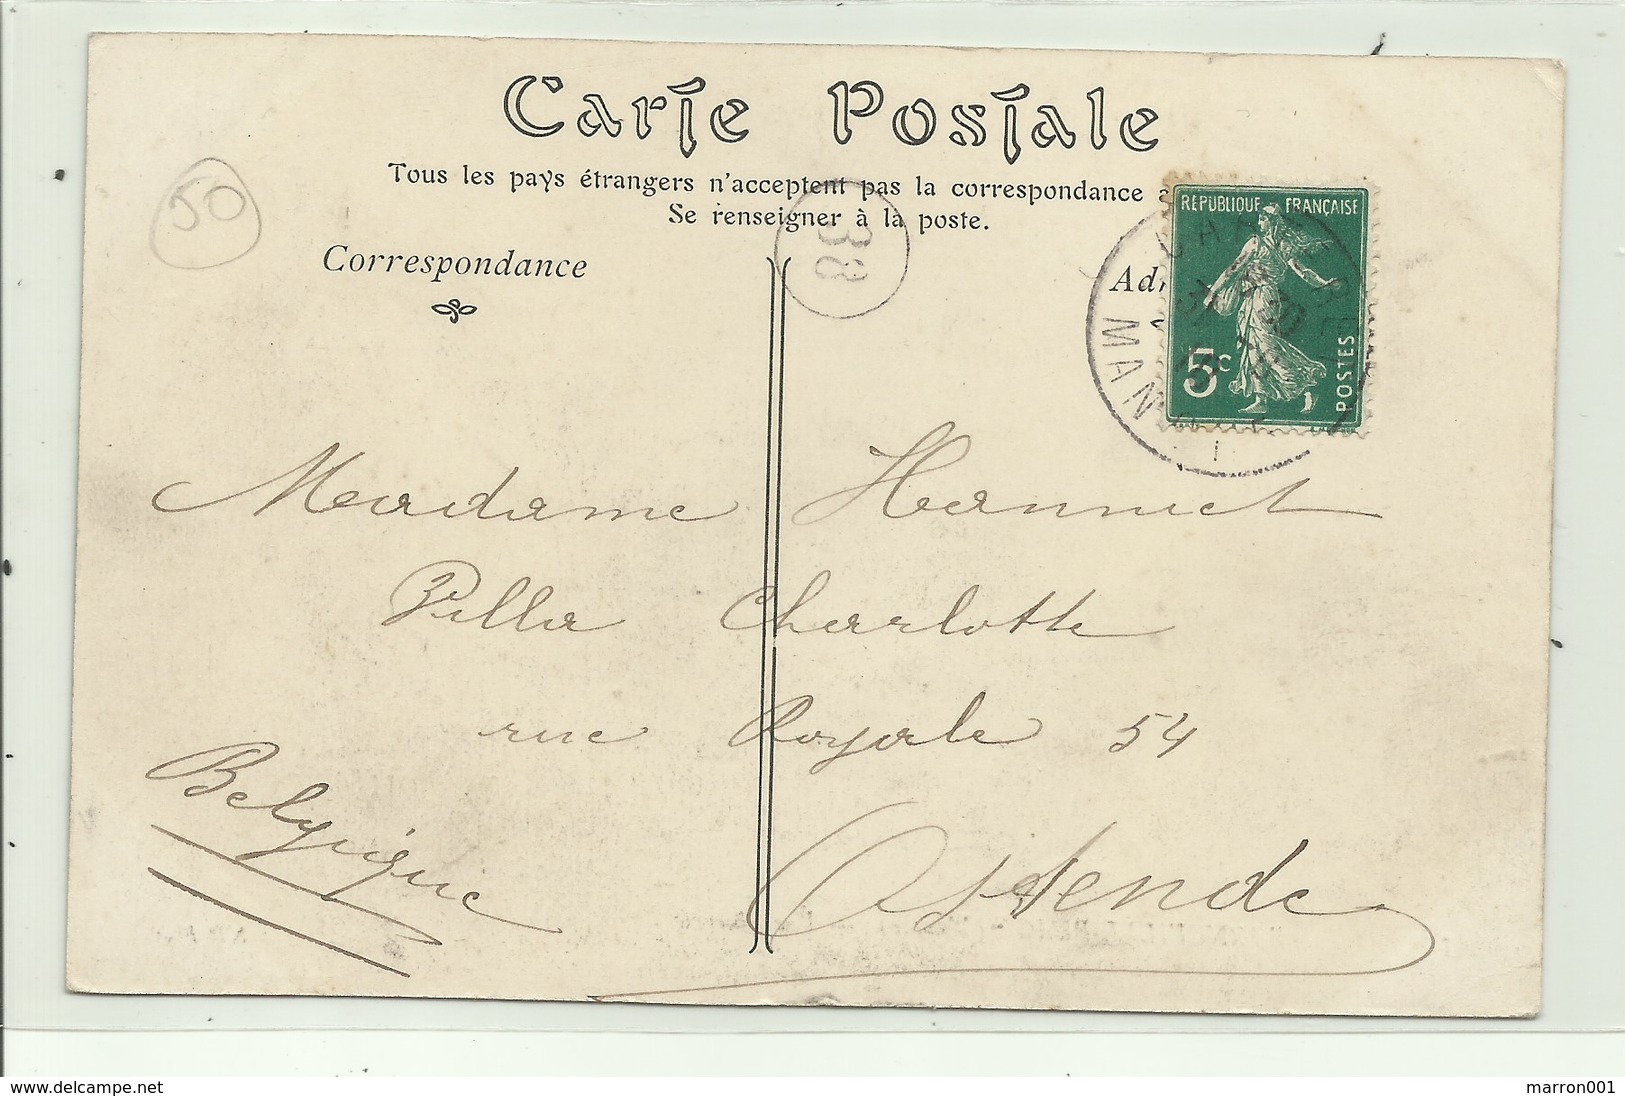 Carte Postale
Tous les pays étrangers n'acceptent pas la correspondance
Se renseigner à la poste.
50
38
Correspondance
RÉPUBLIQUE FRANÇAISE
5c
POSTES
MAN
Madame Hannuet
Villa Charlotte
rue Royale 54
Belgique
Ostende
www.delcampe.net
marron001